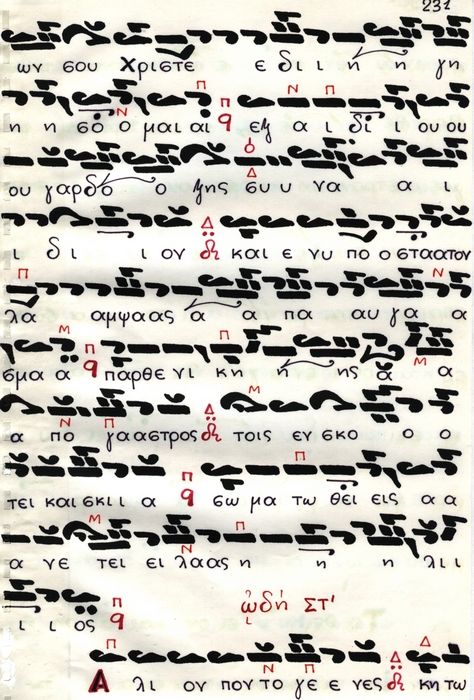 231
ων σου Χριστε ε δι ι η η γη
Π Ν Π Π
η η σο ο μαι αι ε ξ α ι δι ι ου ου
ου γαρ δο ο ο ξης συ υ να α ι
ι δι ι ον και ε νυ πο ο σταατον
λα αμψαας α α πα αυ γα α
σμα α παρθε νι κη η ης α α
α πο γααστρος τοις εν σκο ο ο
τει και σκι ι α σω μα τω θει εις α α
α νε τει ει λαας η η η λι ι
ι ι ος
ὠδή ΣΤ'
Α λι ον πον το γε ε νες κη τω